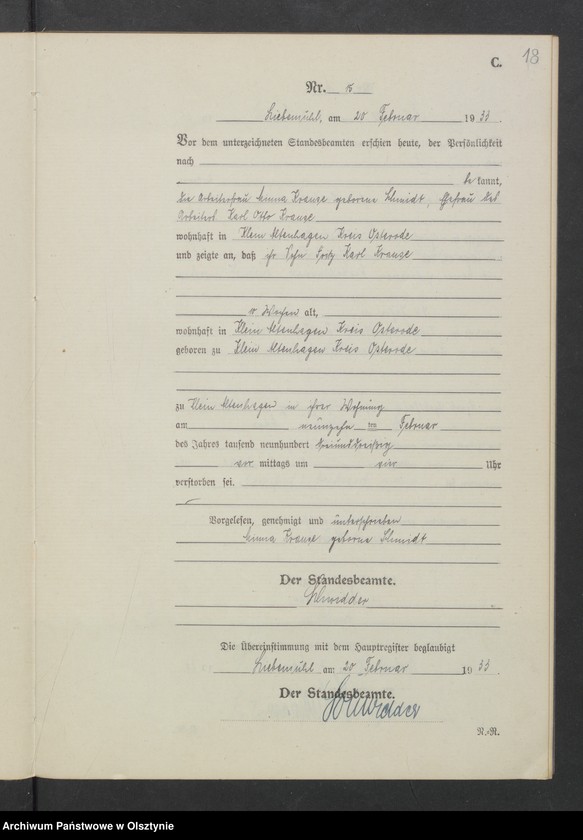 18
C.
Nr.
Liebemühl, am 20 Februar 1933.
Vor dem unterzeichneten Standesbeamten erschien heute, der Persönlichkeit
nach
be kannt,
die Arbeiterfrau Minna Krause geborne Schmidt, Ehefrau des
Arbeiters Karl Otto Krause
wohnhaft in Klein Altenhagen Kreis Osterode
und zeigte an, daß ihr Sohn Karl Krause
Wochen alt,
wohnhaft in Klein Altenhagen Kreis Osterode
geboren zu Klein Altenhagen Kreis Osterode
zu Klein Altenhagen in ihrer Wohnung
am neunzehn ten Februar
des Jahres tausend neunhundert dreiunddreißig
vor mittags um vier Uhr
verstorben sei.
Vorgelesen, genehmigt und unterschrieben
Minna Krause geborne Schmidt
Der Standesbeamte.
Schwedder
Die Übereinstimmung mit dem Hauptregister beglaubigt
Liebemühl am 20 Februar 1933
Der Standesbeamte.
Schwedder
N.-R.
Archiwum Państwowe w Olsztynie